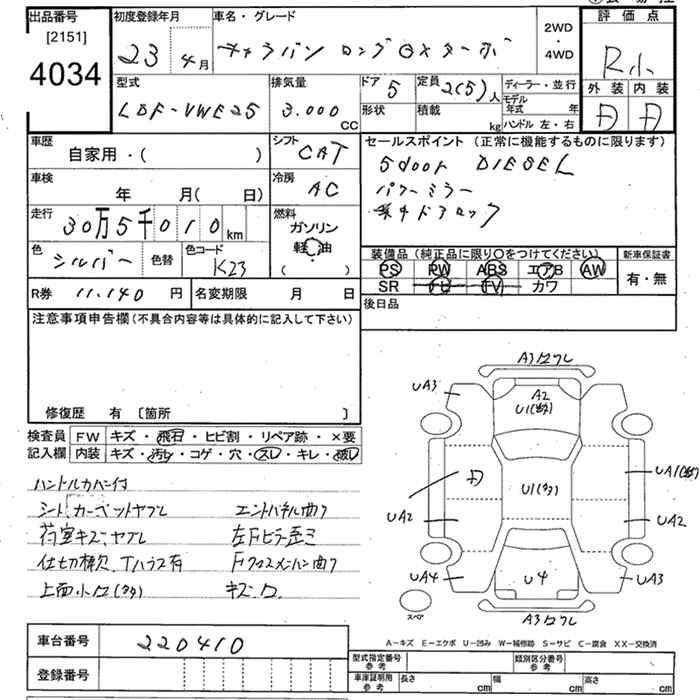 出品番号
[2151]
4034
初度登録年月
23 年 4月
車名・グレード
キャラバン ロング GXターボ
2WD
・
4WD
評価点
R小
外装 内装
D D
型式
LDF-VWE25
排気量
3.000
CC
ドア 5
定員 2(5)人
形状
積載
kg
ディーラー・並行
モデル年式 年
ハンドル 左・右
車歴
自家用・( )
シフト
CAT
車検
年 月( 日)
冷房
AC
走行
30万5千010km
燃料
ガソリン
軽油
( )
色
シルバー
色替
色コード
K23
R券 11.140 円
名変期限 月 日
セールスポイント(正常に機能するものに限ります)
5door DIESEL
パワーミラー
集中ドアロック
装備品(純正品に限り○をつけてください)
新車保証書
PS PW ABS エアB AW
SR ナビ TV カワ
有・無
後日品
注意事項申告欄(不具合内容等は具体的に記入して下さい)
修復歴 有 [箇所 ]
検査員 FW キズ・飛石・ヒビ割・リペア跡・×要
記入欄 内装 キズ・汚れ・コゲ・穴・スレ・キレ・破レ
ハンドルカバー付
シート、カーペットヤブレ
荷室キズ、ヤブレ
エンドパネル曲り
左Fピラー歪ミ
Fクロスメンバー曲り
キズ・凹
A3ワレ
UA3
A2
U1(多数)
D
U1(多)
UA1(多)
UA2
UA2
UA4
U4
UA3
スペア
A3ワレ
A-キズ E-エクボ U-凹み W-補修跡 S-サビ C-腐食 XX-交換済
車台番号 220410
登録番号
型式指定番号参考
類別区分番号参考
車庫証明用参考
長さ cm
幅 cm
高さ cm